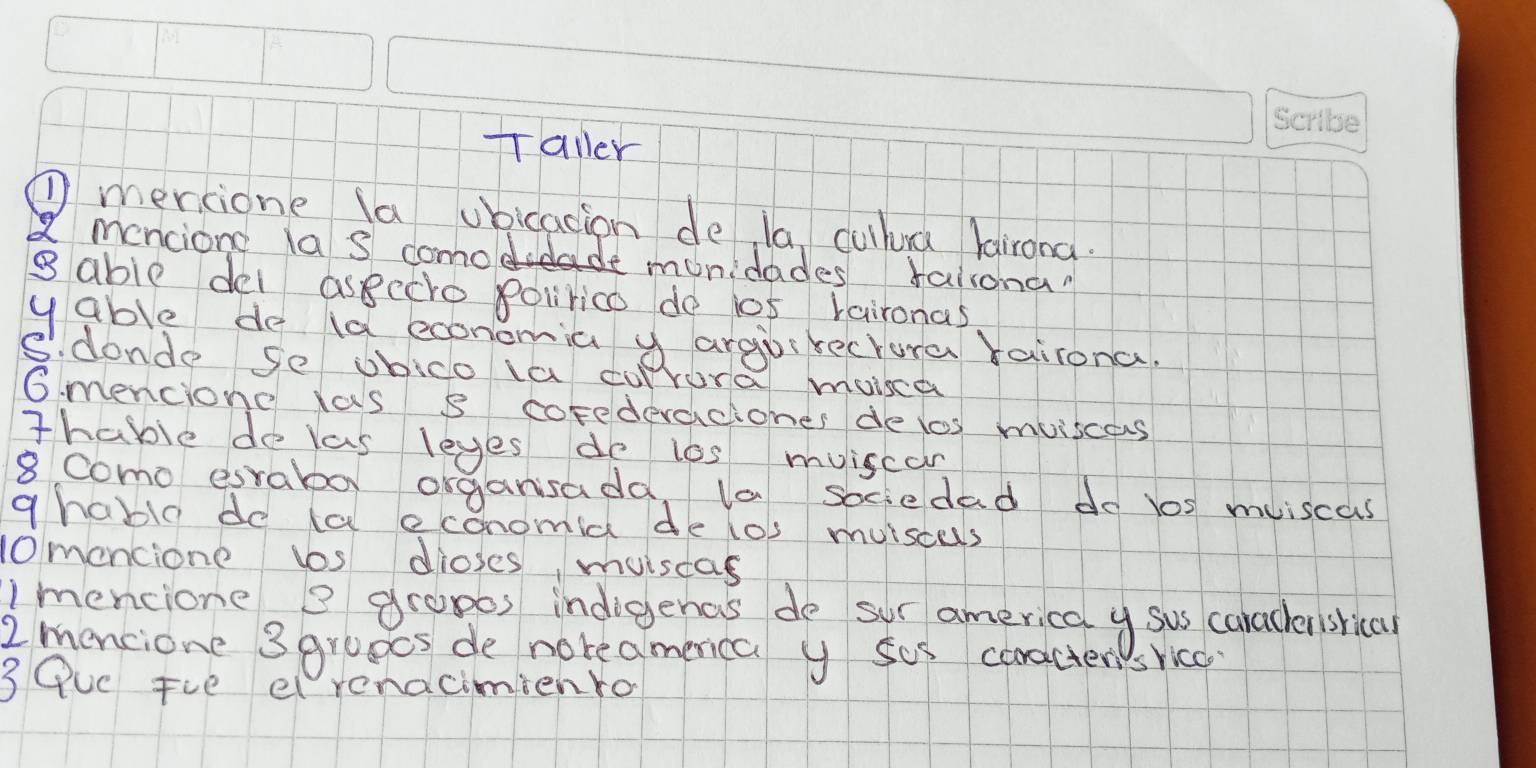 D M A
Scribe
Taller
1 mencione la ubicacion de la cultura tairona.
2 mencione la s comodidade munidades tairona.
3 able del aspecto politico de los taironas
4 able de la economia y arguitectura tairona.
5. donde se ubico la cultura muisca
6. mencione las 5 cofederaciones de los muiscas
7 hable de las leyes de los muiscas
8 como estaba organisada la sociedad de los muiscas
9 hable de la economia de los muiscas
10 mencione los dioses, muiscas
1 mencione 3 grupos indigenas de sur america y sus caracteristicas
2 mencione 3 grupos de noteamerica y sus caracteristica.
3 Que fue el renacimiento